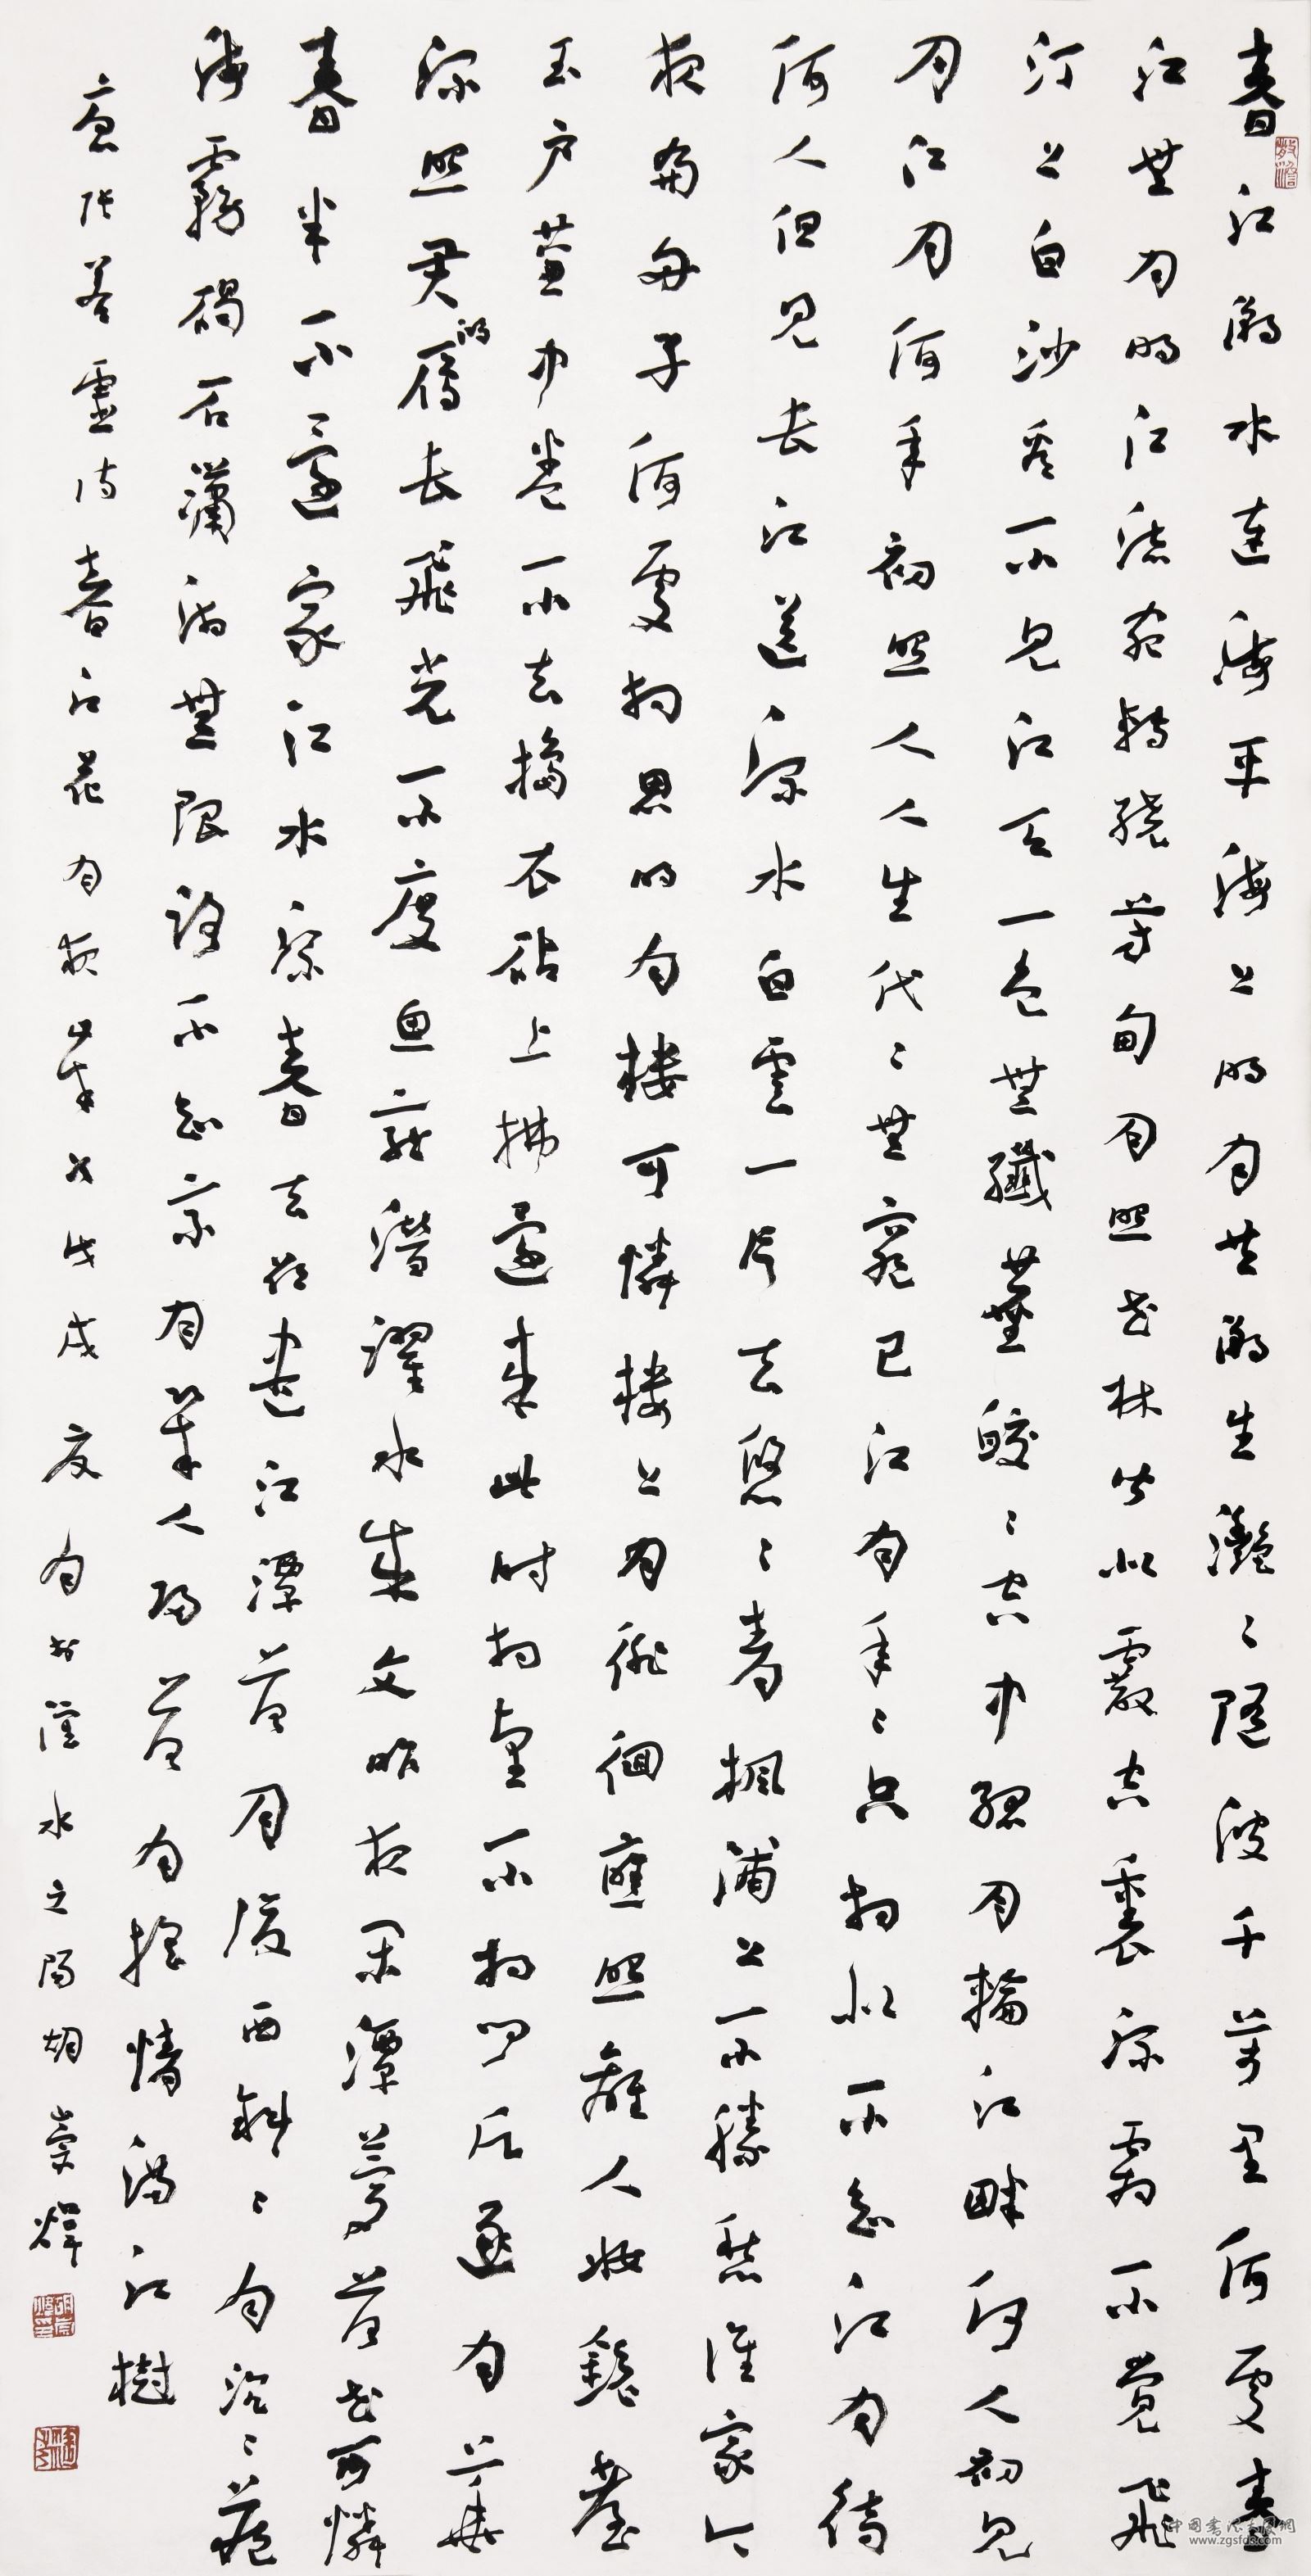 春江潮水連海平海上明月共潮生灩〻隨波千萬里何處春
江無月明江流宛轉繞芳甸月照花林皆似霰空裏流霜不覺飛
汀上白沙看不見江天一色無纖塵皎〻空中孤月輪江畔何人初見
月江月何年初照人人生代〻無窮已江月年〻只相似不知江月待
何人但見長江送流水白雲一片去悠〻青楓浦上不勝愁誰家今
夜扁舟子何處相思明月樓可憐樓上月徘徊應照離人妝鏡臺
玉戶簾中卷不去擣衣砧上拂還來此時相望不相聞願逐月華
流照君鴻雁長飛光不度魚龍潛躍水成文昨夜閑潭夢落花可憐
春半不還家江水流春去欲盡江潭落月復西斜〻月沉〻藏
海霧碣石瀟湘無限路不知乘月幾人歸落月搖情滿江樹
唐張若虛詩春江花月夜戊戌夏月於漢水之陽胡崇煒
中国书法大展網
www.zgsfds.com